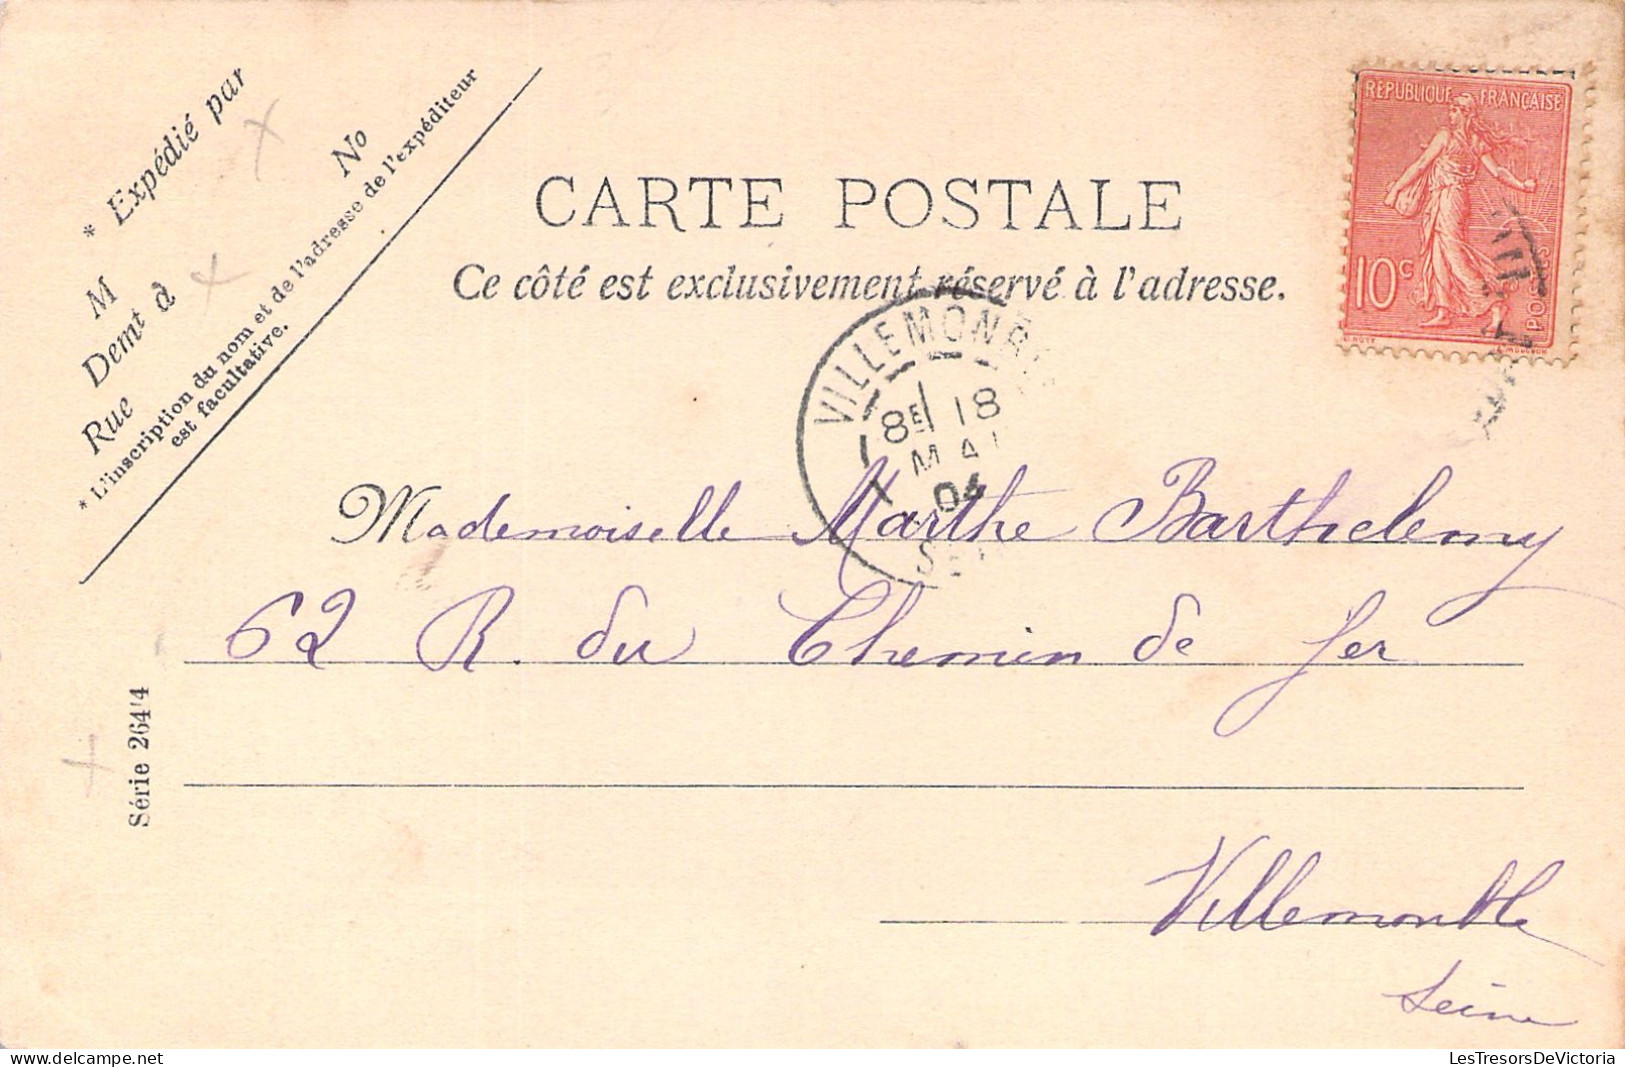 * Expédié par
M
Demt à
Rue
No
* L'inscription du nom et de l'adresse de l'expéditeur
est facultative.
CARTE POSTALE
Ce côté est exclusivement réservé à l'adresse.
REPUBLIQUE FRANÇAISE
10c
POSTES
VILLEMON
8E 18
MAI
04
Mademoiselle Marthe Barthelemy
62 R. du Chemin de fer
Villemonble
Seine
Série 264/4
LesTresorsDeVictoria